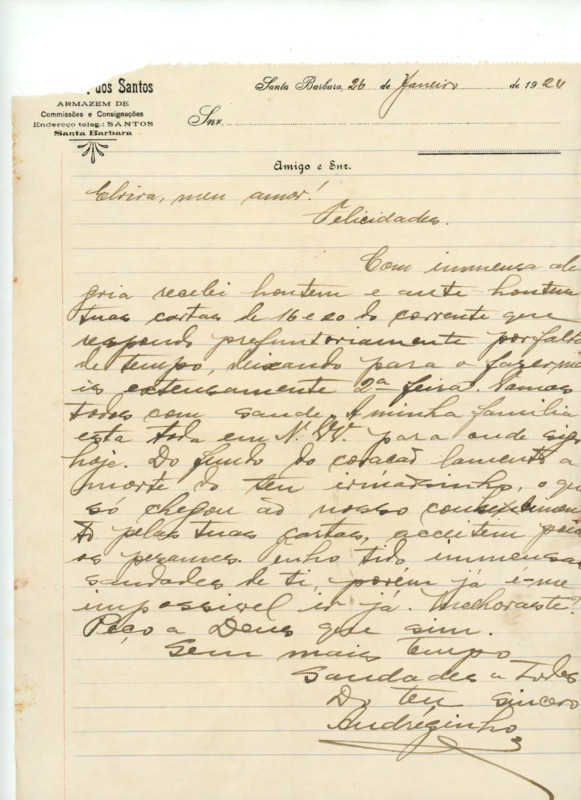 dos Santos
ARMAZEM DE
Commissões e Consignações
Endereço teleg.: SANTOS
Santa Barbara
Santa Barbara, 26 de Janeiro de 1924
Snr.
Amigo e Snr.
Elvira, meu amor!
Felicidades.
Com immensa ale
gria recebi hontem e ante hontem
tuas cartas de 16 e 20 do corrente que
respondo profuntoriamente por falta
de tempo, deixando para o fazer ma
is extensamente 2ª feira. Vamos
todos com saude. A minha familia
esta toda em N. para onde sigo
hoje. Do fundo do coração lamento a
morte do teu irmãosinho, o que
só chegou ao nosso conhecimen
to pelas tuas cartas, acceitem pois
os pezames. enho tido immensas
saudades de ti, porém já é-me
impossivel ir já. Melhoraste?
Peço a Deus que sim.
Sem mais tempo
Saudades a Todos
Do teu sincero
Andréginho